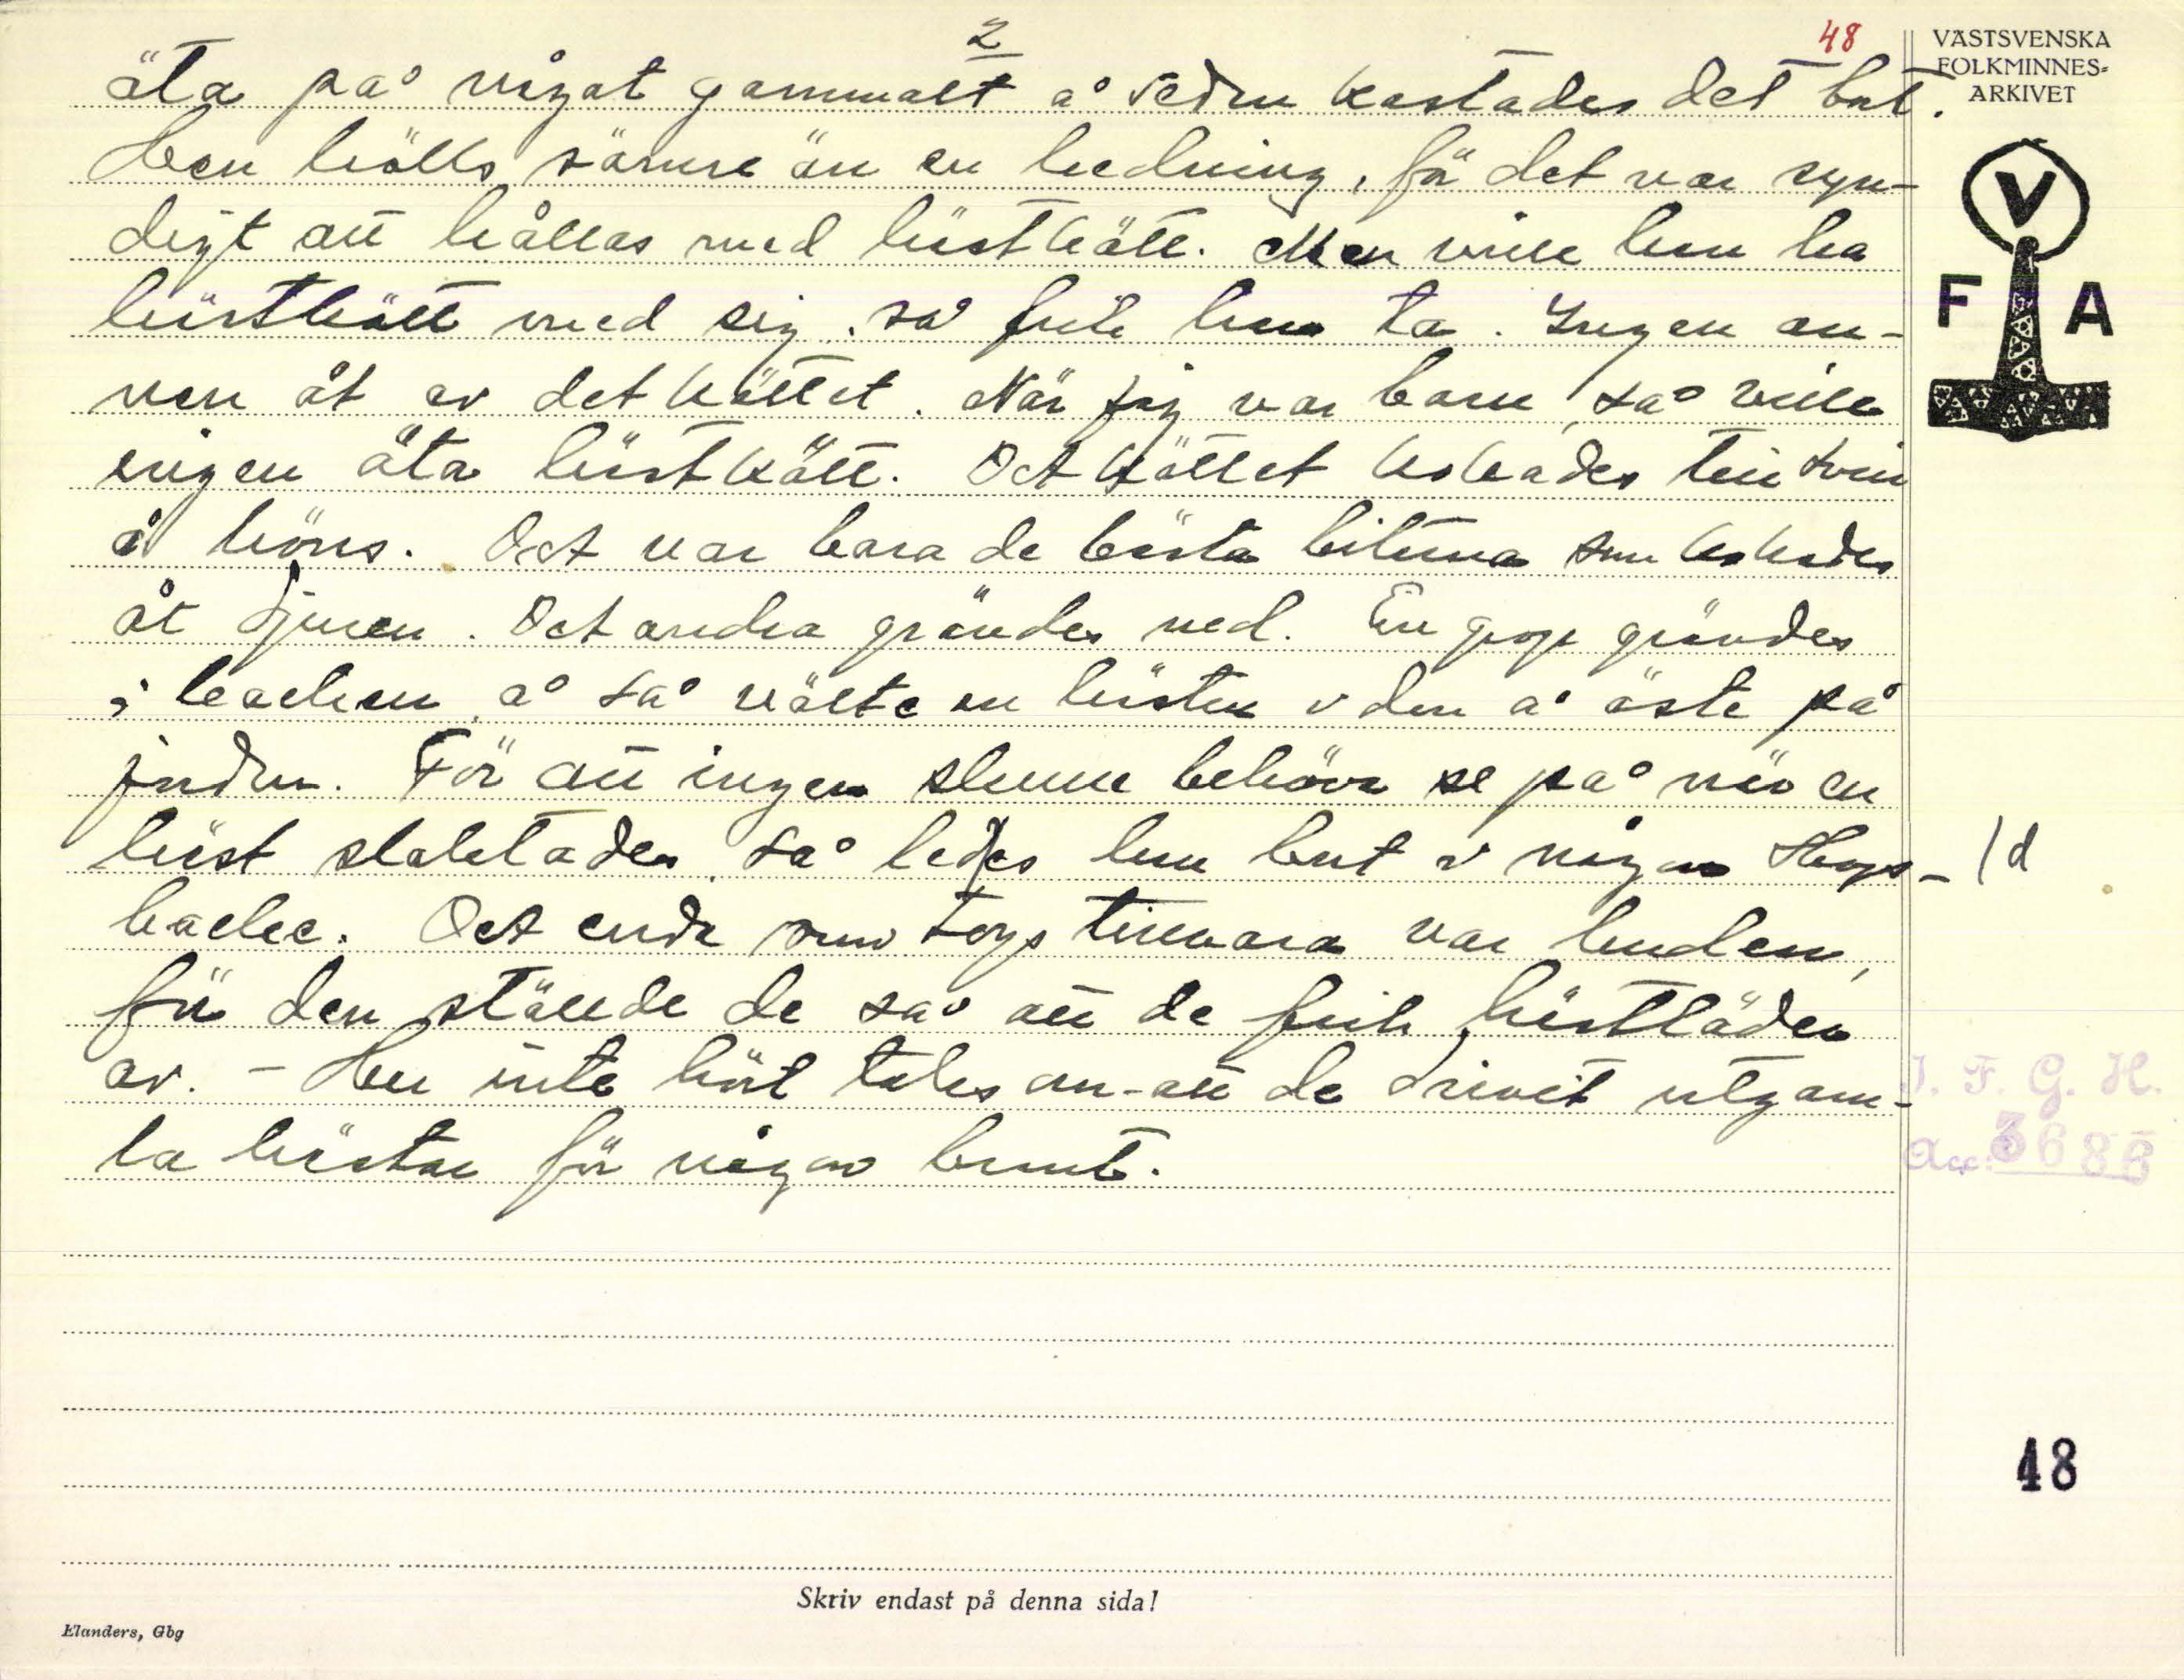 2
48
äta på någat gammalt å sedan kastades det bort.
Hen hölls sämre än en hedning, fö det var syn-
digt att hållas med hästkött. Men ville hen ha
hästkött med sig, så fick hen ta. Ingen an-
nen åt av det köttet. När jag var barn, så ville
ingen äta hästkött. Det köttet kokades till svin
å höns. Det var bara de bästa bitarna som kokades
åt djuren. Det andra grävdes ned. En grop grävdes
i backen å så välte en hästen i den å öste på
jorden. För att ingen skulle behöva se på när en
häst slaktades, så leddes hen bort i någon skogs-
backe. Det enda som togs tillvara var huden,
för den ställde de så att de fick hästläder
av. - Hen inte hört tales om att de drivit ut gam-
la hästar för någon brant.
/d
VÄSTSVENSKA
FOLKMINNES-
ARKIVET
V
F A
I. F. G. H.
Acc. 3686
48
Skriv endast på denna sida!
Elanders, Gbg